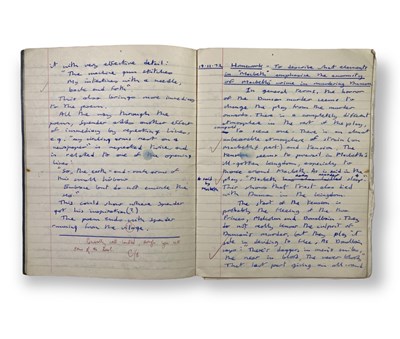 it with very effective detail:
"The machine gun stitches
My intestines with a needle,
back and forth"
This also brings more
to the poem.
All the way through the
poem, Spender adds another effect
of immediacy by repeating lines,
e.g. "my writing arm went on a
newspaper" is repeated twice, and
is related to one of the opening
lines:
"So, the earth-and-rock arms of
this small harbour
Embrace but do not encircle the
sea"
This could show where Spender
got his inspiration(?)
The poem ends with Spender
running from the village.
Homework: To describe what elements
in "Macbeth" emphasise the enormity
of Macbeth's crime in murdering Duncan
In general terms, the horror
of the Duncan murder seems to
change the play from the murder
onwards. There is a completely different
atmosphere in the rest of the play,
compared
to scene one. There is an almost
unbearable atmosphere of strain (on
Macbeth's part) and tension. The
tension seems to prevail in Macbeth's
ill-gotten kingdom, especially to
those around Macbeth. As is said in the
play - "Macbeth
said by
Macbeth
This shows that trust also died
with Duncan in the kingdom.
The start of the tension is
probably the fleeing of the two
Princes, Malcolm and Donalbain. They
do not really know the culprit of
Duncan's murder, but they play it
safe in deciding to flee. As Donalbain
says: There's daggers in men's smiles,
the near in blood, the nearer bloody"
That last part giving an all-round